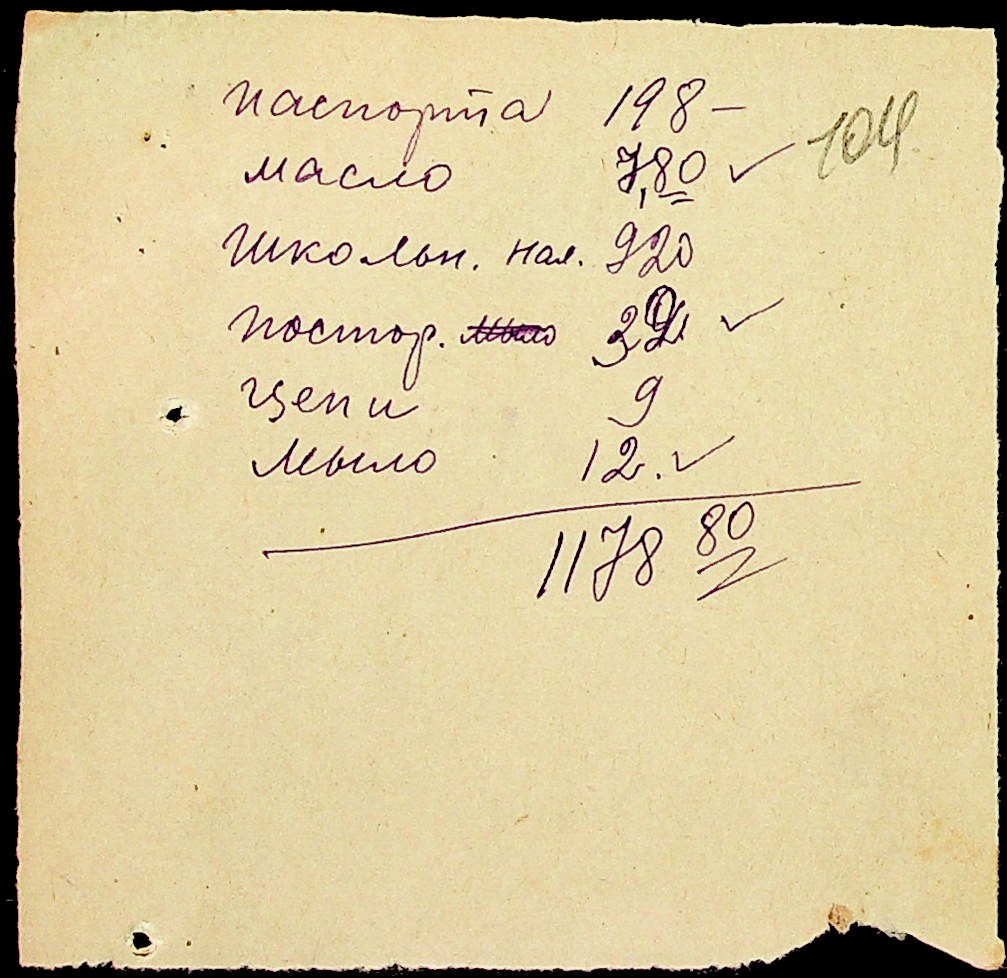 паспорта 198 –
масло 7,80 ✓ 104
Школьн. нал. 920
постор. 32 ✓
Цепи 9
Мыло 12. ✓
1178 80